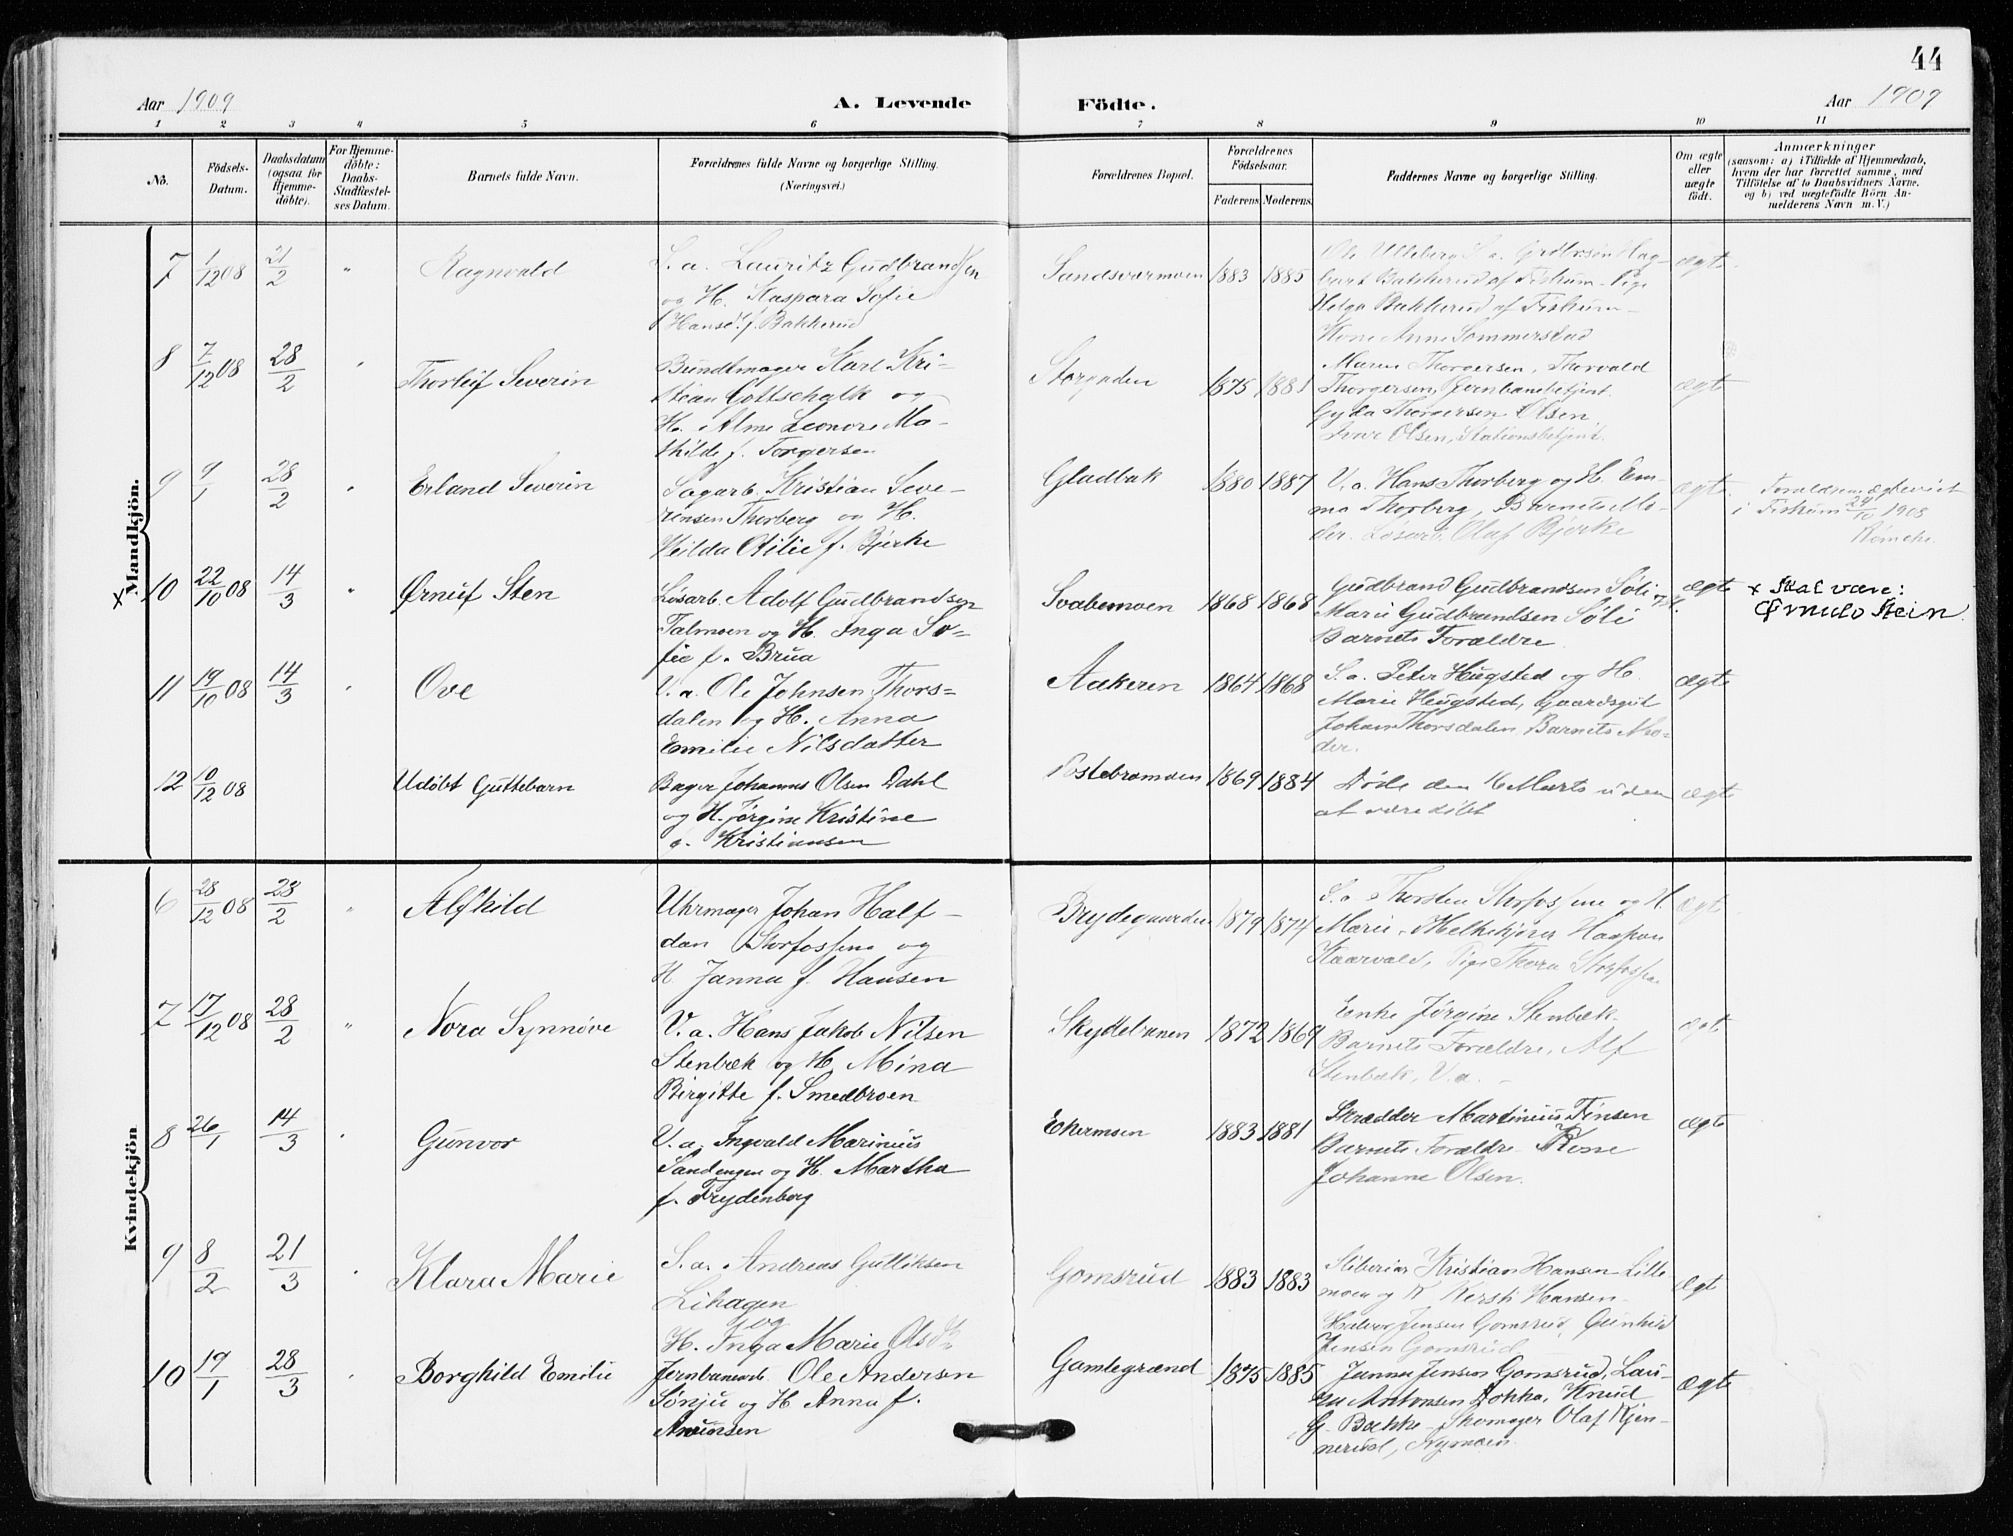 44
Aar 1909 A. Levende Födte. Aar 1909
1 2 3 4 5 6 7 8 9 10 11
No.
Födsels-
Datum.
Daabsdatum
(ogsaa for
Hjemme-
döbte).
For Hjemme-
döbte:
Daabs-
Stadfæstel-
ses Datum.
Barnets fulde Navn.
Forældrenes fulde Navne og borgerlige Stilling.
(Næringsvei.)
Forældrenes Bopæl.
Forældrenes
Födselsaar.
Faderens Moderens
Faddernes Navne og borgerlige Stilling.
Om ægte
eller
uægte
födt.
Anmærkninger
(saasom: a) i Tilfælde af Hjemmedaab,
hvem der har forrettet samme, med
Tilföielse af to Daabsvidners Navne,
og b) ved uægtefödte Börn An-
melderens Navn m. V.)
Mandkjön.
7 1/12 08 21/2 " Ragnvald
S. a. Lauritz Gudbrandsen
og H. Kaspara Sofie
Hansd. f. Bakkerud
Sandsværmoen 1883 1885
Ole Ulleberg S. a. Hag-
bart Bakkerud af Fiskum. Pige
Helga Bakkerud af Fiskum
Kone Anne Sommerstad
ægte
8 7/12 08 28/2 " Thorleif Severin
Bundtmager Karl Kri-
stian Gottschalk og
H. Alma Leonore Ma-
thilde f. Torgersen
Storgaden 1875 1881
Maren Thorgersen, Thorvald
Thorgersen, Jernbanebetjent.
Gyda Thorgersen Olsen
Ivar Olsen, Stationsbetjent.
ægte
9 9/1 28/2 " Erland Severin
Sagarb. Kristian Seve-
rinsen Thorberg og H.
Hilda Otilie f. Bjerke
Gladbak 1880 1887
V. a. Hans Thorberg og H. Em-
ma Thorberg, Barnets Mo-
der. Løsarb. Olaf Bjerke
ægte
i Fiskum 24/10 1908
x 10 22/10 08 14/3 " Ørnulf Sten
Løsarb. Adolf Gudbrandsen
Talmoen og H. Inga So-
fie f. Brua
Svabemoen 1868 1868
Gudbrand Gudbrandsen Søli
Marie Gudbrandsen Søli
Barnets Forældre
ægte
x Skal være:
Ørnulv Stein.
11 19/10 08 14/3 " Ove
V. a. Ole Johnsen Thors-
dalen og H. Anna
Emilie Nilsdatter
Aakeren 1864 1868
S. a. Peter Hugsted og H.
Marie Hugsted, Gaardsgut
Johan Thorsdalen Barnets Mo-
der.
ægte
12 10/12 08 Udöbt Guttebarn
Bager Johannes Olsen Dahl
og H. Jørgine Kristine
f. Kristiansen
1869 1884
Døde den 16 Marts uden
at være døbt
ægte
Kvindekjön
6 28/12 08 28/2 " Alfhild
Uhrmager Johan Half-
dan Storfossene og
H. Janna f. Hansen
Brydegaarden 1879 1874
S. a Thorsten Storfossene og H.
Marie. Melkekjører Haagen
Kaarvald, Pige Thora Storfossen
ægt
7 17/12 08 28/2 " Nora Synnöve
V. a. Hans Jakob Nilsen
Stenbæk og H. Mina
Birgitte f. Smedbroen
Skydebanen 1872 1869
Enke Jørgine Stenbæk
Barnets Forældre, Alf
Stenbæk, V. a.
ægt
8 26/1 14/3 " Gunvor
V. a. Ingvald Marinius
Sandengen og H. Martha
f. Frydenberg
Ekermoen 1883 1881
Skrædder Martinius Finsen
Barnets Forældre Kone
Johanne Olsen.
ægte
9 8/2 21/3 " Klara Marie
S. a. Andreas Gulliksen
Lihagen
og
H. Inga Marie Olsdtr
Gomsrud 1883 1883
Sliberiar. Kristian Hansen Lille-
moen og K. Kersti Hansen
Halvor Jensen Gomsrud, Gunhild
Jensen Gomsrud
ægt
10 19/1 28/3 " Borghild Emilie
Jernbanearb. Ole Andersen
Sönju og H Anna f.
Amundsen
Gamlegrænd 1875 1885
Janna Jensen Gomsrud, Lau-
ra Antonsen Aokka, Knud
G. Bakke. Skomager Olaf Kjen-
nerud, Nymoen.
ægte